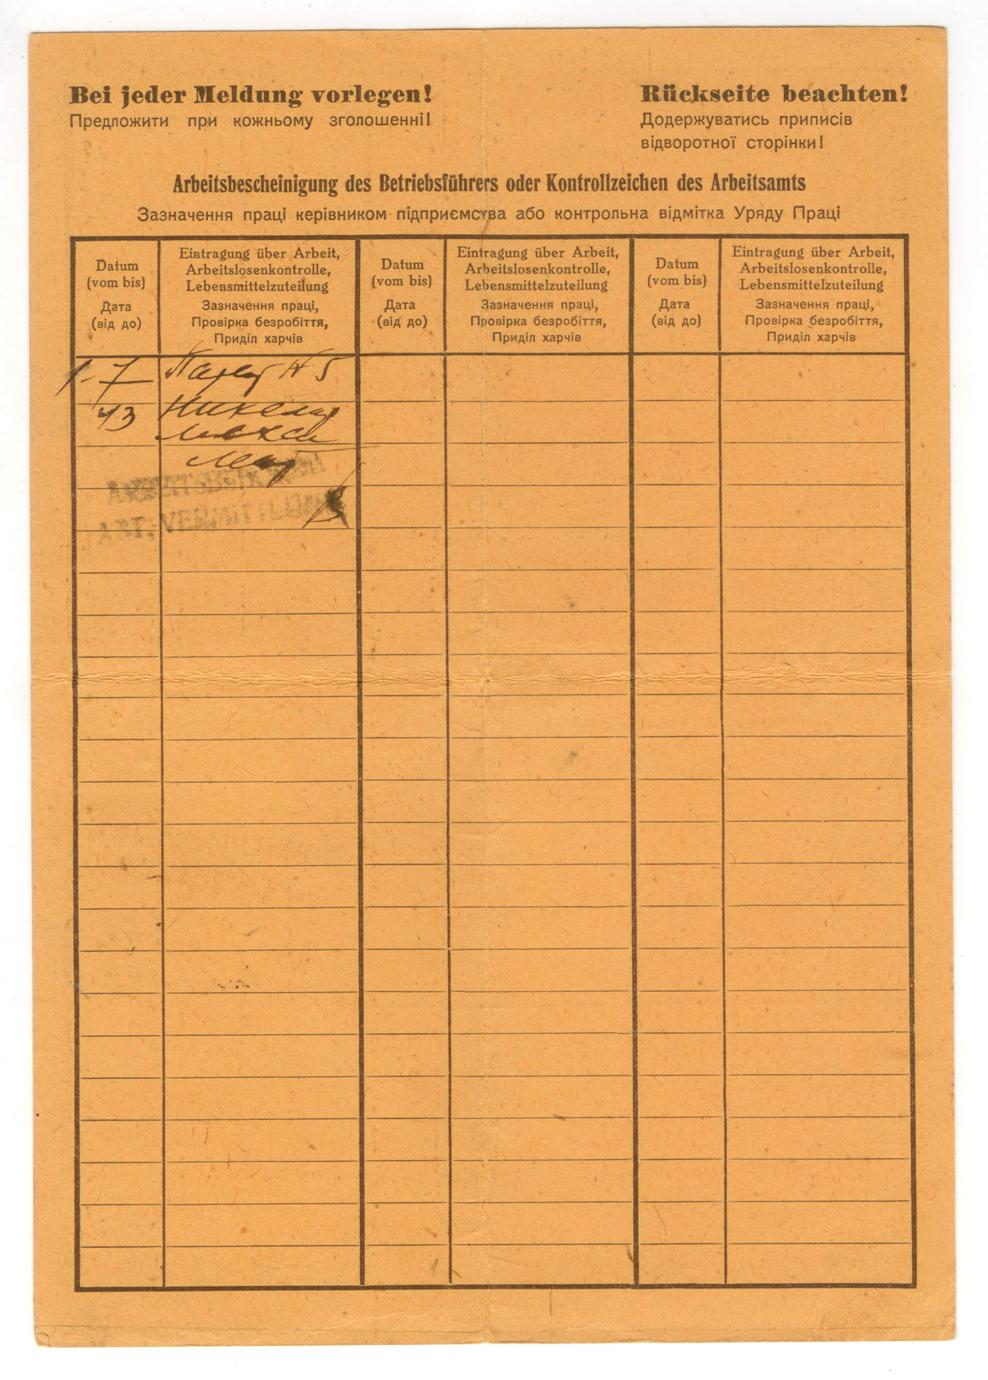 Bei jeder Meldung vorlegen!
Предложити при кожньому зголошенні!
Rückseite beachten!
Додержуватись приписів
відворотної сторінки!
Arbeitsbescheinigung des Betriebsführers oder Kontrollzeichen des Arbeitsamts
Зазначення праці керівником підприємства або контрольна відмітка Уряду Праці
Datum
(vom bis)
Дата
(від до)
Eintragung über Arbeit,
Arbeitslosenkontrolle,
Lebensmittelzuteilung
Зазначення праці,
Провірка безробіття,
Приділ харчів
Datum
(vom bis)
Дата
(від до)
Eintragung über Arbeit,
Arbeitslosenkontrolle,
Lebensmittelzuteilung
Зазначення праці,
Провірка безробіття,
Приділ харчів
Datum
(vom bis)
Дата
(від до)
Eintragung über Arbeit,
Arbeitslosenkontrolle,
Lebensmittelzuteilung
Зазначення праці,
Провірка безробіття,
Приділ харчів
1-7
43
ABT. VERMITTLUNG